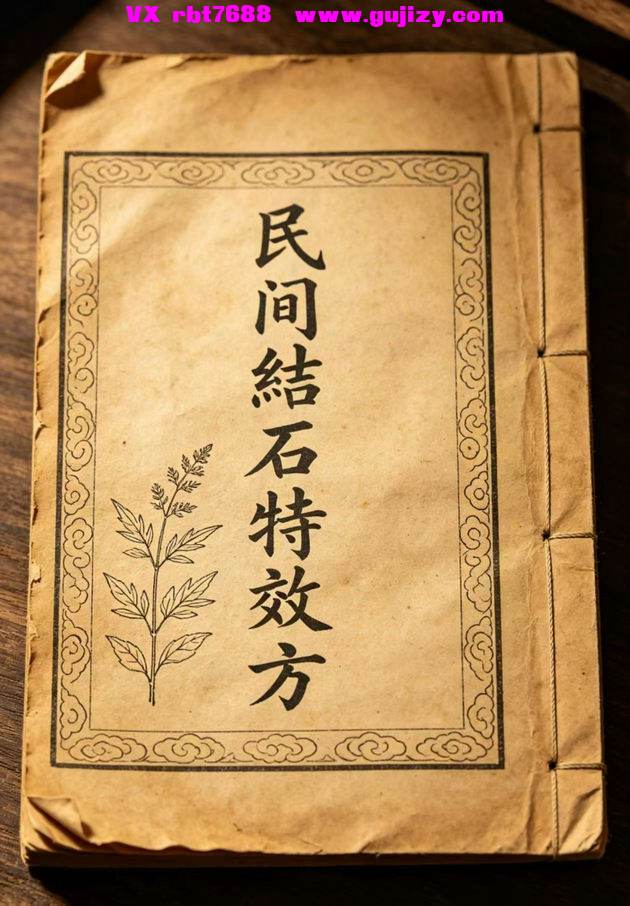 VX rbt7688 www.gujizy.com
民间結石特效方